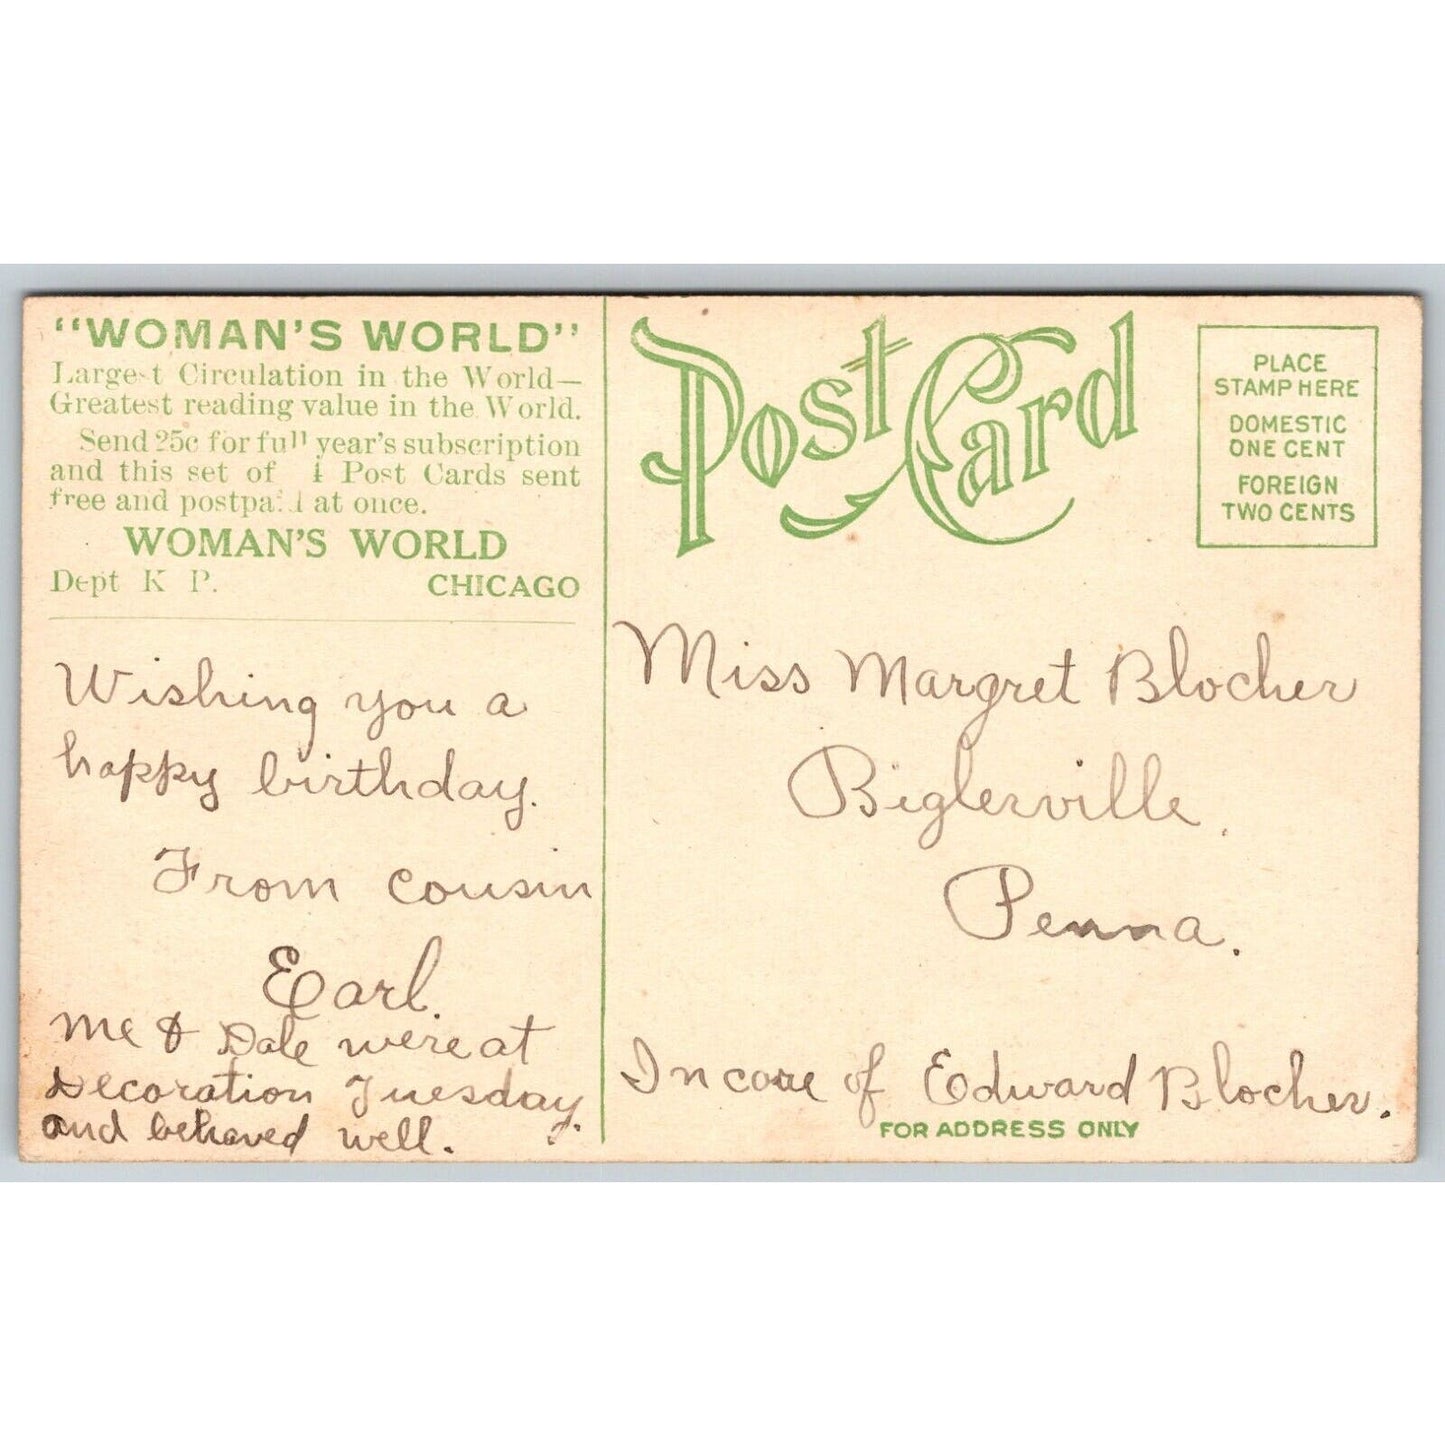 "WOMAN'S WORLD"
Largest Circulation in the World—
Greatest reading value in the World.
Send 25c for full year's subscription
and this set of 4 Post Cards sent
free and postpaid at once.
WOMAN'S WORLD
Dept K P. CHICAGO
Wishing you a
happy birthday.
From cousin
Earl.
Me & Dale were at
Decoration Tuesday.
and behaved well.
Post Card
PLACE
STAMP HERE
DOMESTIC
ONE CENT
FOREIGN
TWO CENTS
Miss Margret Blocher
Biglerville,
Penna.
In care of Edward Blocher.
FOR ADDRESS ONLY